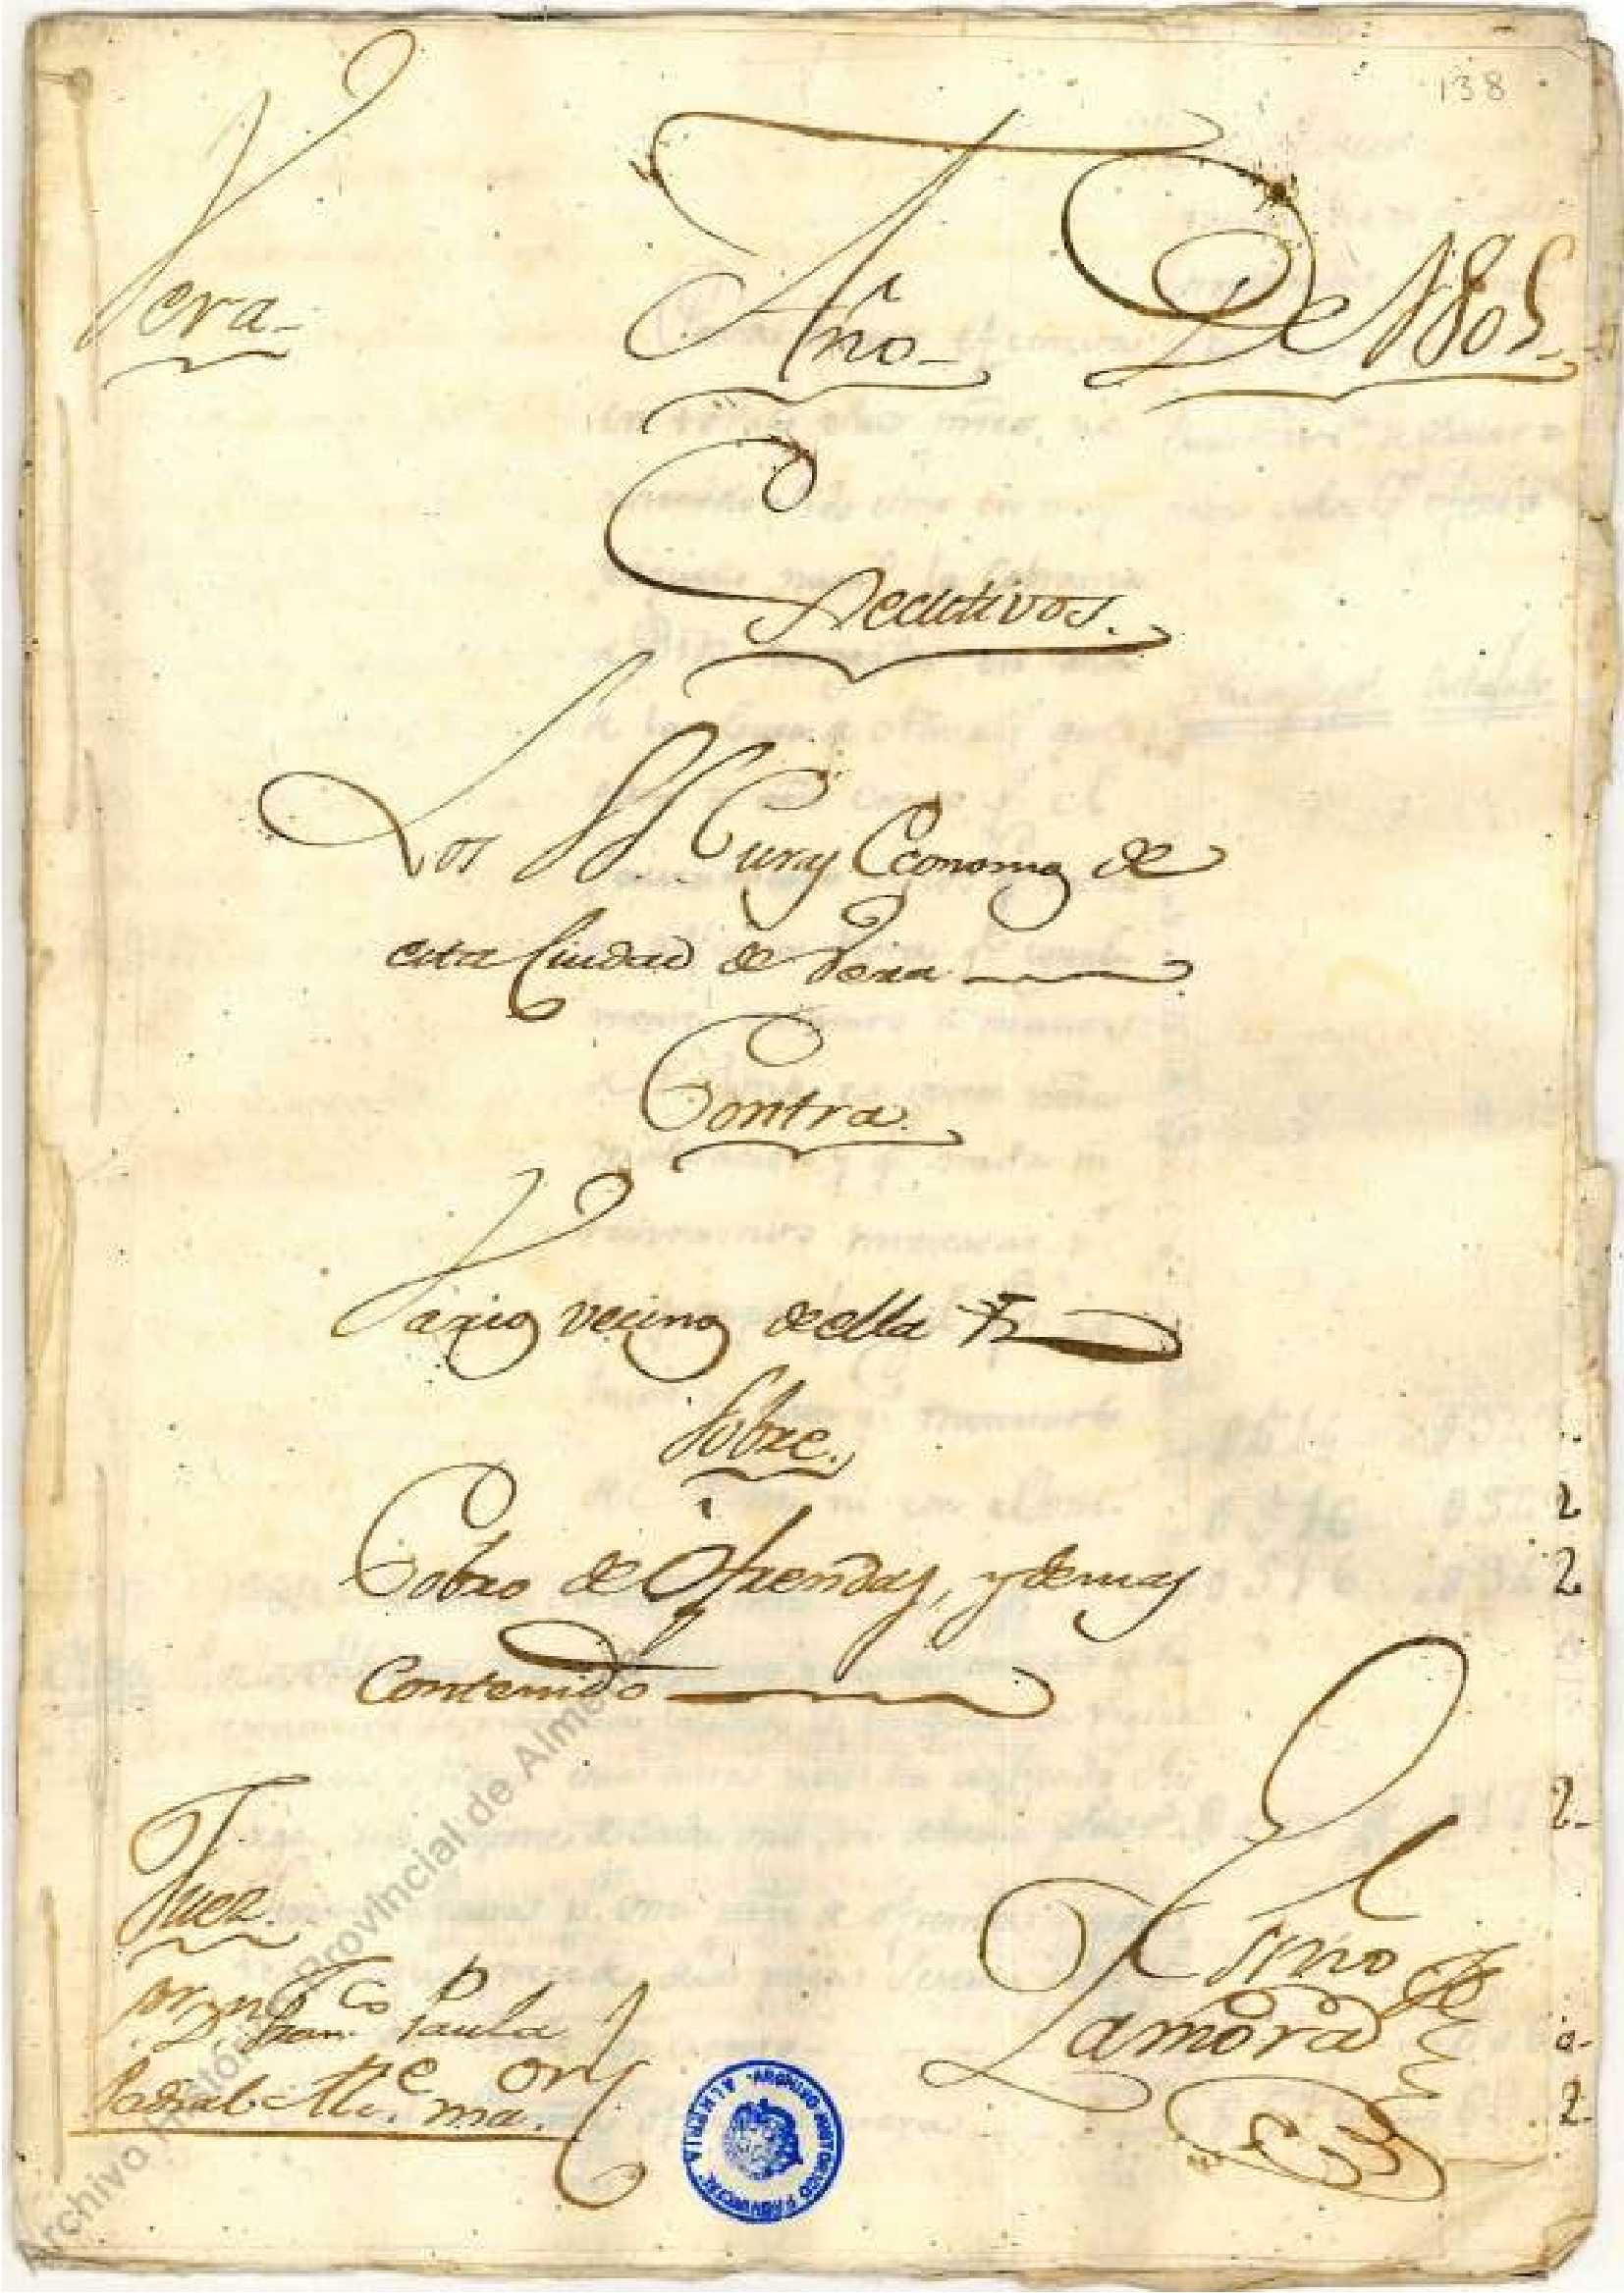 138
Vera
Año De 1805
Executivos.
Los SS. Curas Economos de
esta Ciudad de Vera
Contra
Varios vecinos de ella
Sobre
Cobro de Ofrendas, y demas
Contenido
Juez
Sor. Dn. Franco. Paula
Alce. mor.
El
Esno
Zamora
2
2
2
2
Archivo Histórico Provincial de Almería
ARCHIVO HISTORICO PROVINCIAL ALMERIA